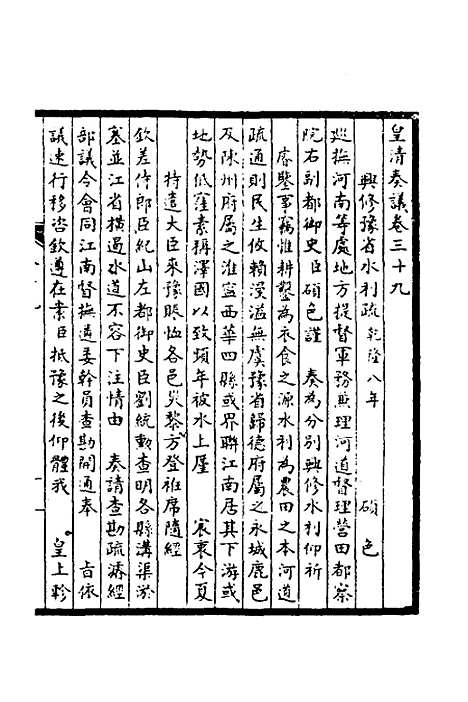 皇清奏議卷三十九
興修豫省水利疏乾隆八年 碩色
巡撫河南等處地方提督軍務兼理河道督理營田都察
院右副都御史臣碩色謹 奏為分別興修水利仰祈
睿鑒事竊惟耕鑿為衣食之源水利為農田之本河道
疏通則民生攸賴浸溢無虞豫省歸德府屬之永城鹿邑
及陳州府屬之淮寧西華四縣或界聯江南居其下游或
地勢低窪素稱澤國以致頻年被水上廑 宸衷今夏
特遣大臣來豫賑恤各邑災黎方登袵席隨經
欽差侍郎臣紀山左都御史臣劉統勳查明各縣溝渠淤
塞並江省橫過水道不容下注情由 奏請查勘疏濬經
部議令會同江南督撫遴委幹員查勘開通奉 旨依
議速行移咨欽遵在案臣抵豫之後仰體我 皇上軫